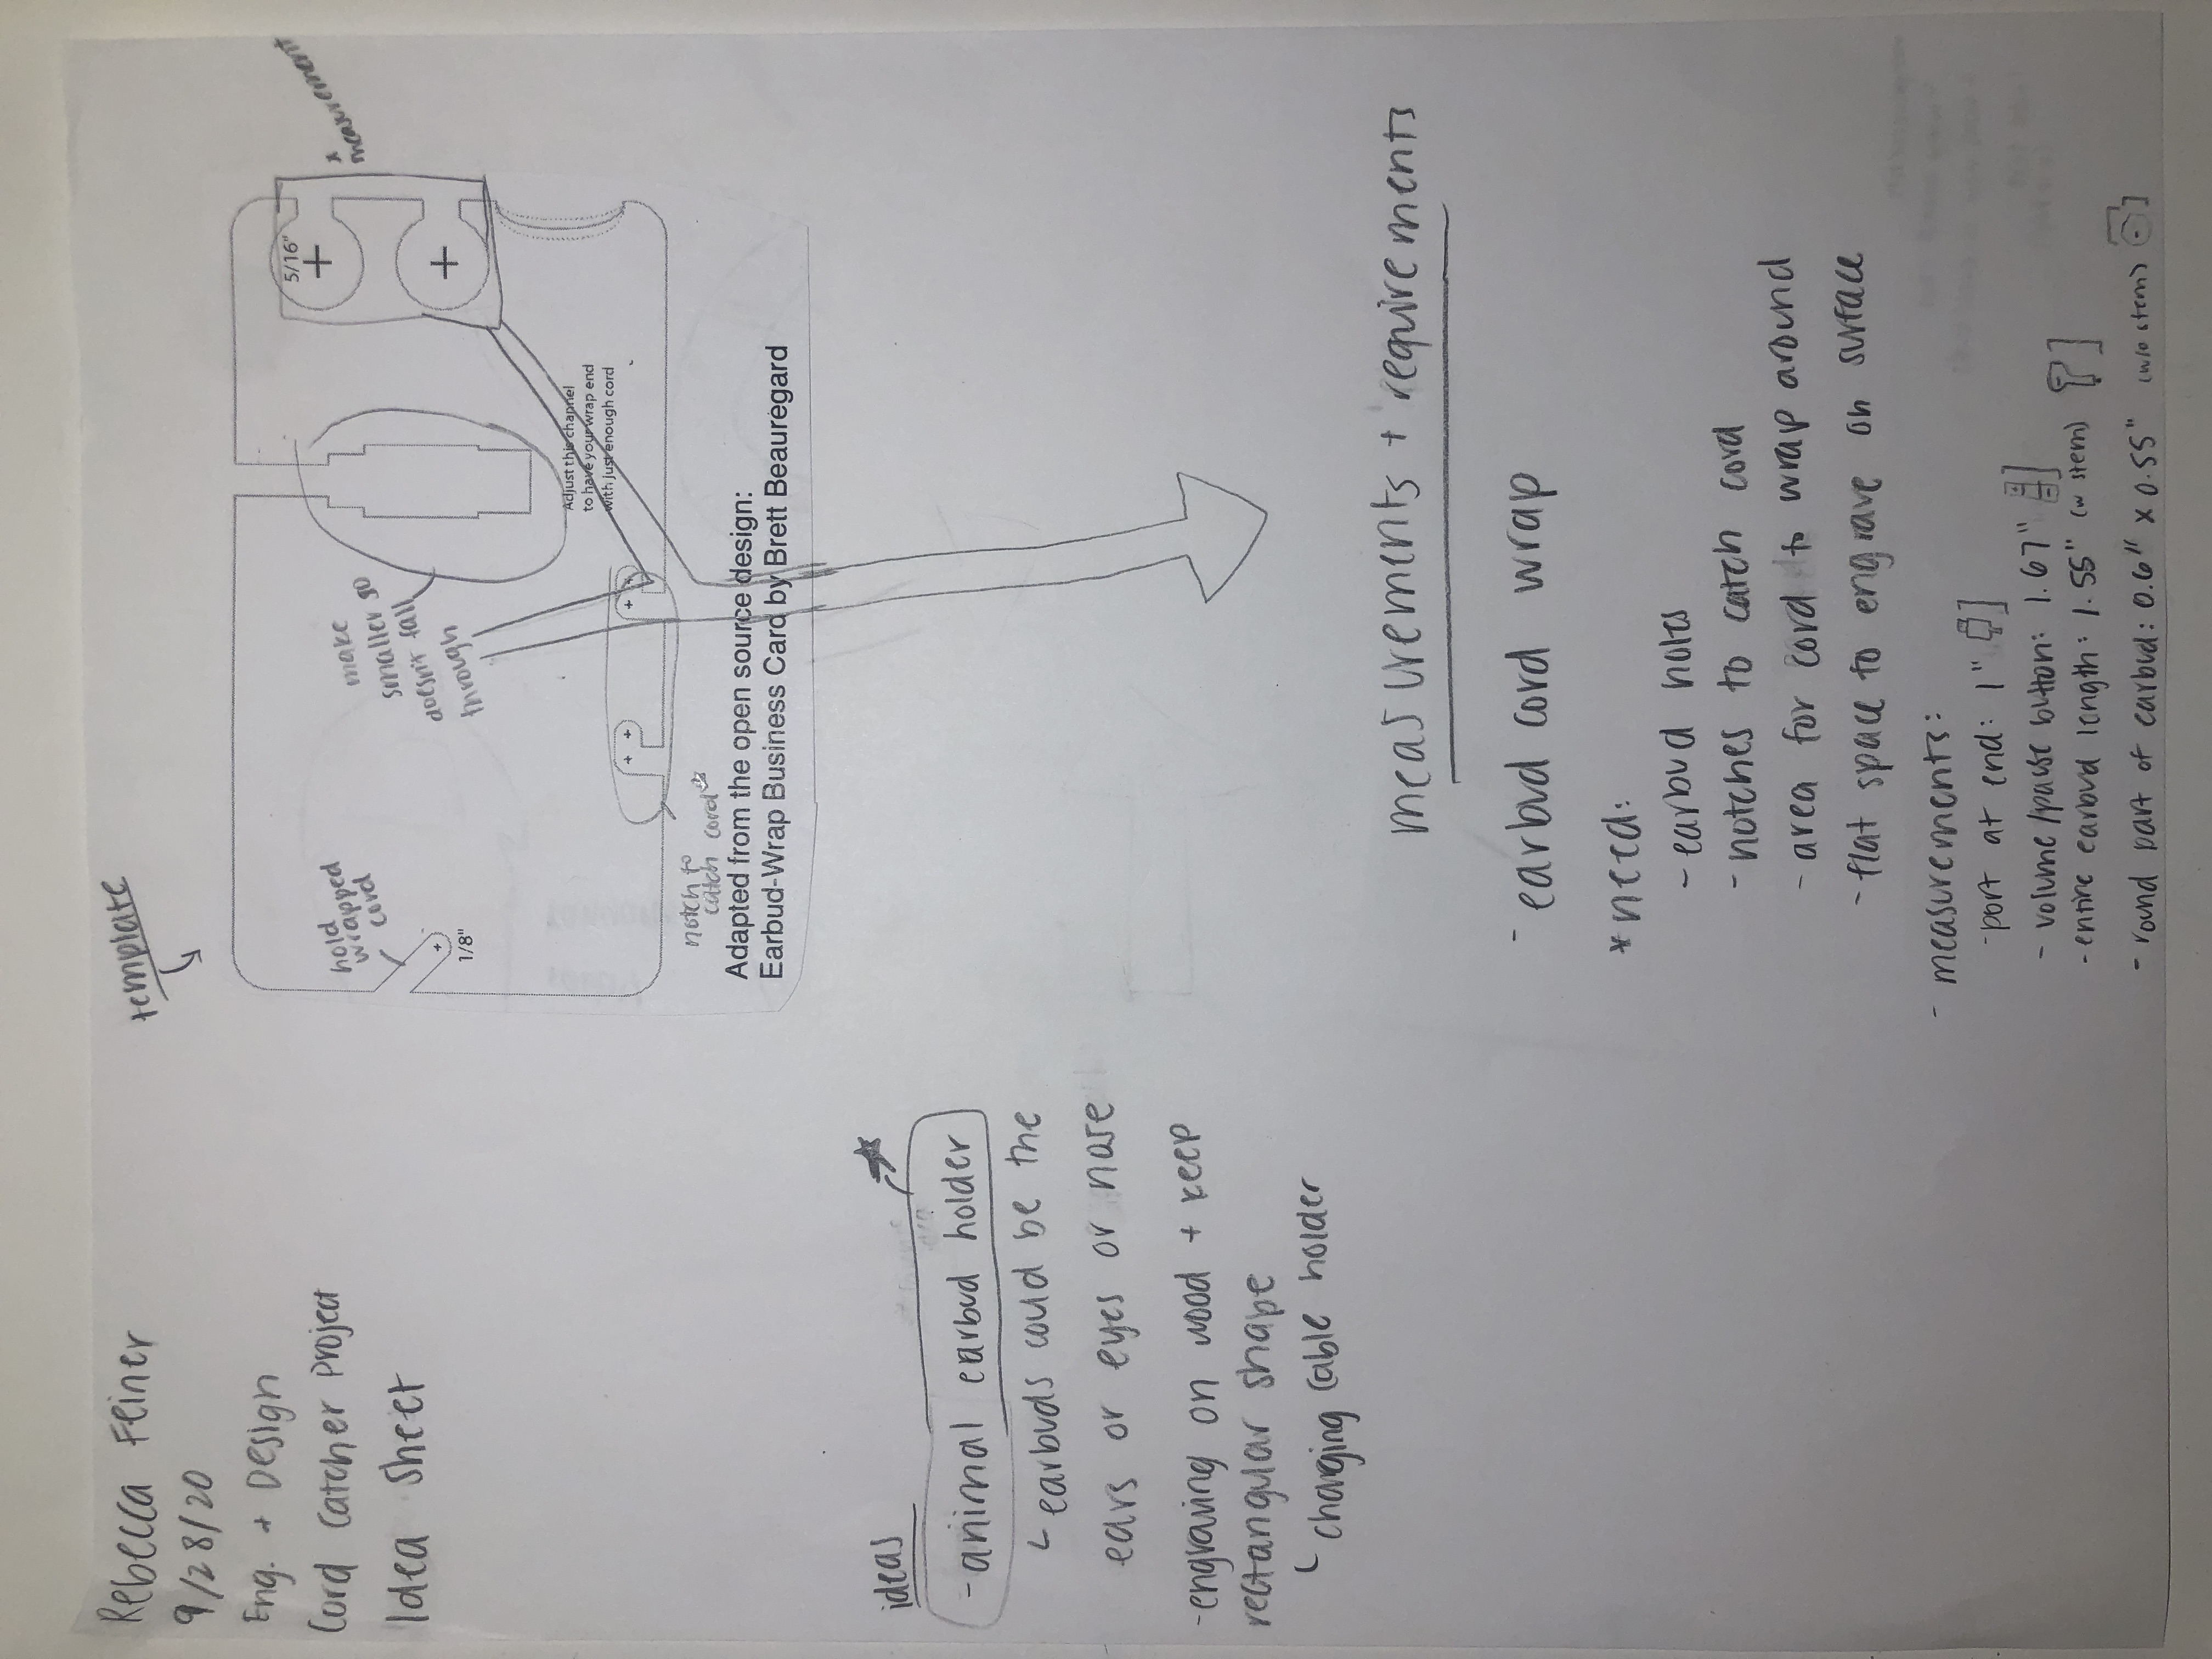 Rebecca Feiner
9/28/20
Eng. + Design
Cord Catcher Project
Idea Sheet
template
hold
wrapped
cord
1/8"
make
smaller so
doesn't fall
through
5/16"
* measurement
Adjust this channel
to have your wrap end
with just enough cord
notch to
catch cord
Adapted from the open source design:
Earbud-Wrap Business Card by Brett Beauregard
ideas
- animal earbud holder
earbuds could be the
ears or eyes or nose
- engraving on wood + keep
rectangular shape
charging cable holder
measurements + requirements
- earbud cord wrap
* need:
- earbud holes
- notches to catch cord
- area for cord to wrap around
- flat space to engrave on surface
- measurements:
- port at end: 1"
- volume/pause button: 1.67"
- entire earbud length: 1.55" (w stem)
- round part of earbud: 0.6" x 0.55" (w/o stem)